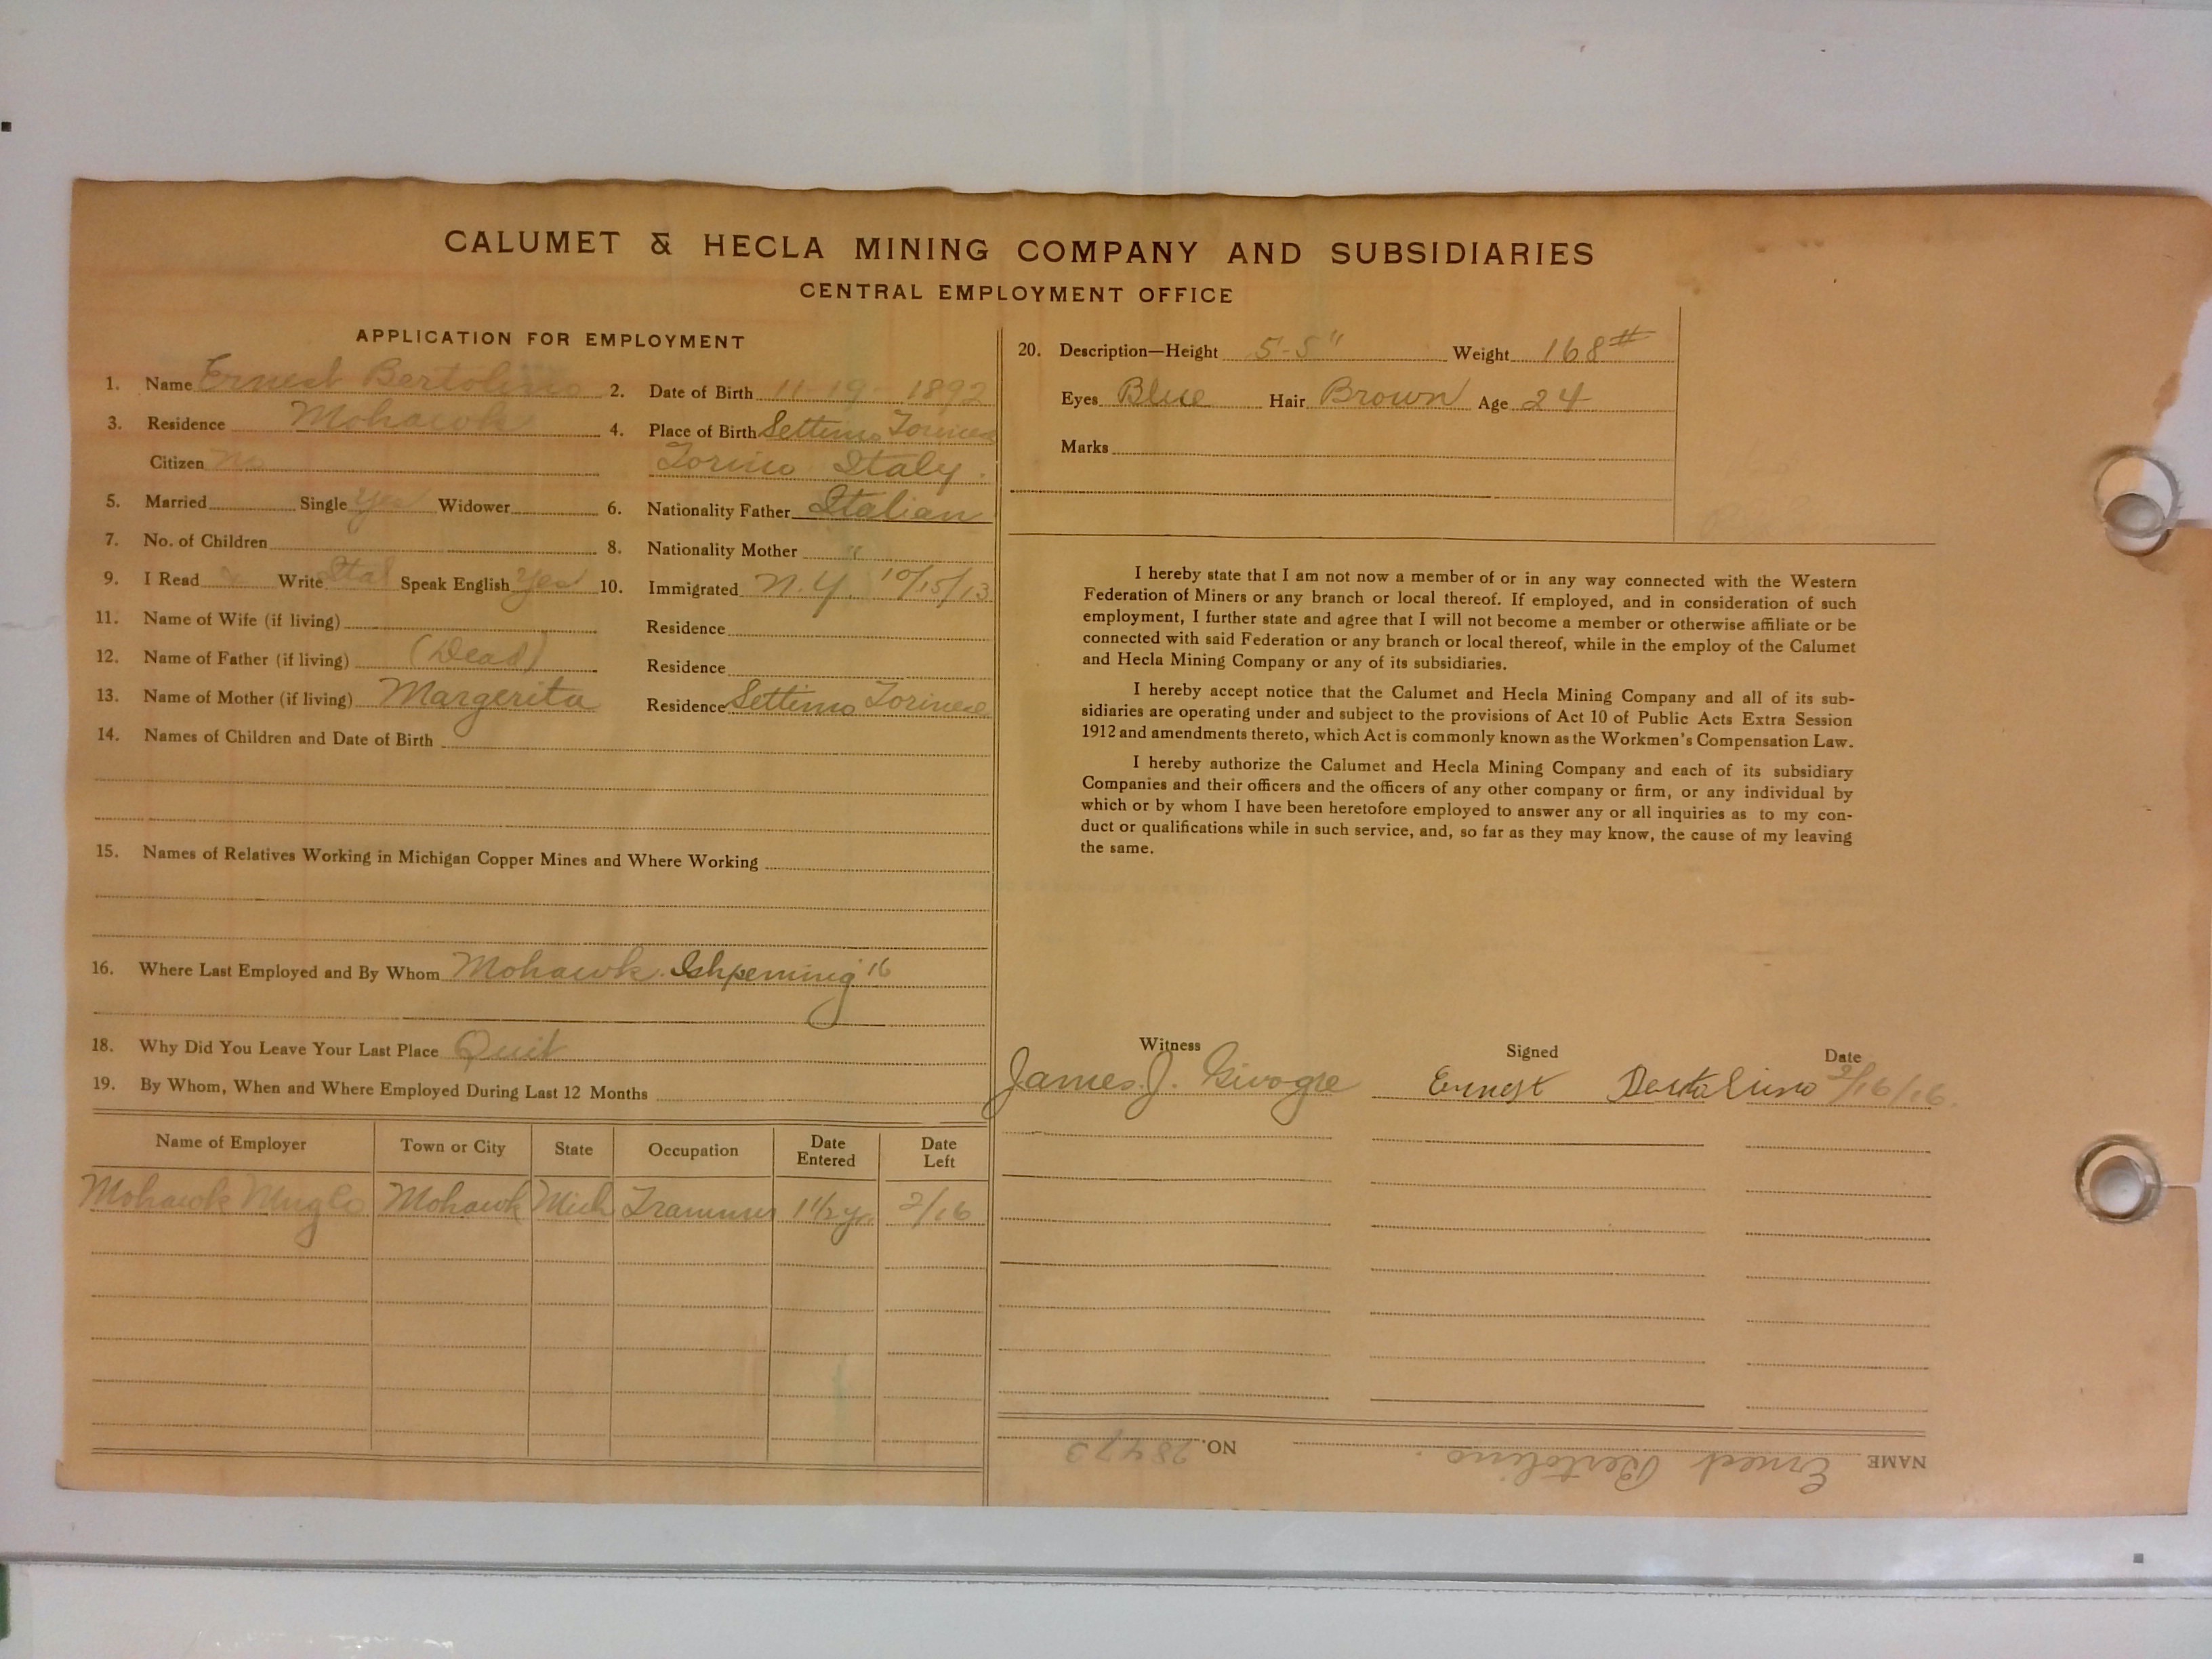 CALUMET & HECLA MINING COMPANY AND SUBSIDIARIES
CENTRAL EMPLOYMENT OFFICE
APPLICATION FOR EMPLOYMENT
1. Name Ernest Bertolino 2. Date of Birth 11-19-1892
3. Residence Mohawk 4. Place of Birth Settimo Torinese
Citizen No Torino Italy.
5. Married Single Yes Widower 6. Nationality Father Italian
7. No. of Children 8. Nationality Mother "
9. I Read Write Ital Speak English Yes 10. Immigrated N.Y. 10/15/13
11. Name of Wife (if living) Residence
12. Name of Father (if living) (Dead) Residence
13. Name of Mother (if living) Margerita Residence Settimo Torinese
14. Names of Children and Date of Birth
15. Names of Relatives Working in Michigan Copper Mines and Where Working
16. Where Last Employed and By Whom Mohawk. Ishpeming 16
18. Why Did You Leave Your Last Place Quit
19. By Whom, When and Where Employed During Last 12 Months
Name of Employer Town or City State Occupation Date Entered Date Left
Mohawk Mng Co Mohawk Mich Trammer 1 1/2 yr. 2/16
20. Description—Height 5-5" Weight 168#
Eyes Blue Hair Brown Age 24
Marks
I hereby state that I am not now a member of or in any way connected with the Western
Federation of Miners or any branch or local thereof. If employed, and in consideration of such
employment, I further state and agree that I will not become a member or otherwise affiliate or be
connected with said Federation or any branch or local thereof, while in the employ of the Calumet
and Hecla Mining Company or any of its subsidiaries.
I hereby accept notice that the Calumet and Hecla Mining Company and all of its sub-
sidiaries are operating under and subject to the provisions of Act 10 of Public Acts Extra Session
1912 and amendments thereto, which Act is commonly known as the Workmen's Compensation Law.
I hereby authorize the Calumet and Hecla Mining Company and each of its subsidiary
Companies and their officers and the officers of any other company or firm, or any individual by
which or by whom I have been heretofore employed to answer any or all inquiries as to my con-
duct or qualifications while in such service, and, so far as they may know, the cause of my leaving
the same.
Witness Signed Date
James J. Givogre Ernest Bertolino 2/16/16.
NAME Ernest Bertolino. NO. 28473